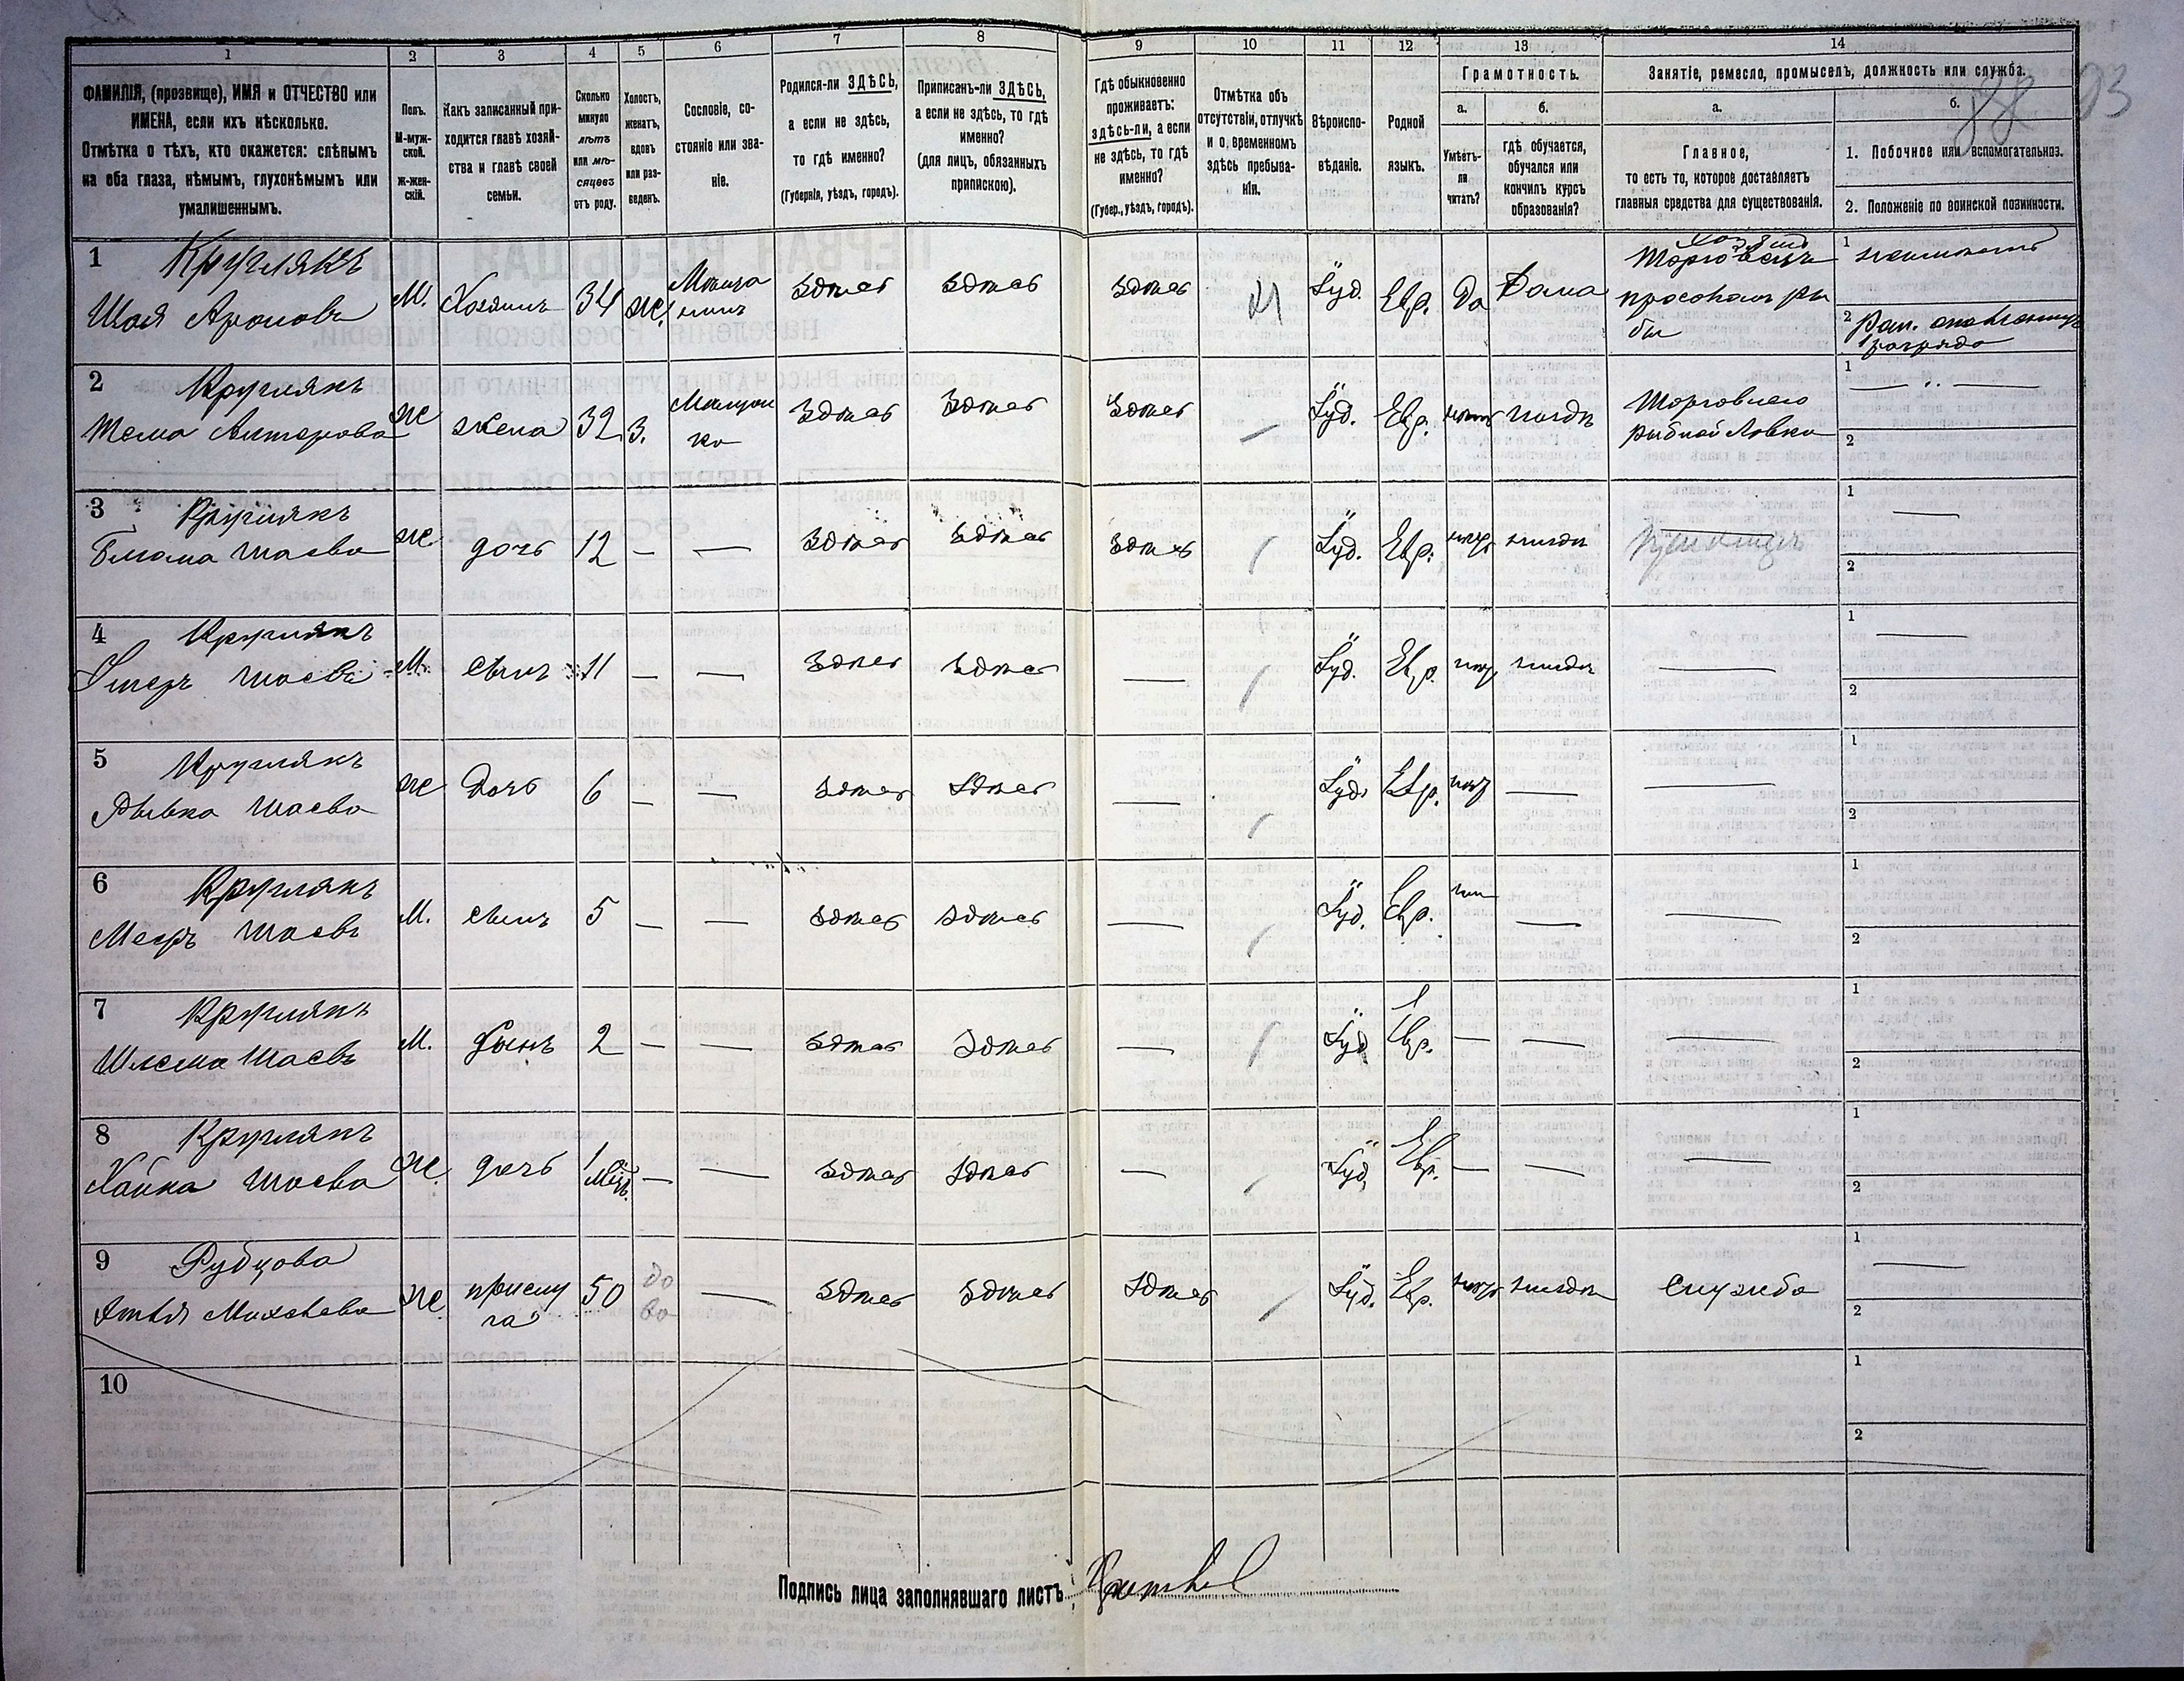 1 2 3 4 5 6 7 8 9 10 11 12 13 14
ФАМИЛІЯ, (прозвище), ИМЯ и ОТЧЕСТВО или
ИМЕНА, если ихъ нѣсколько.
Отмѣтка о тѣхъ, кто окажется: слѣпымъ
на оба глаза, нѣмымъ, глухонѣмымъ или
умалишеннымъ.
Полъ.
М-муж-
ской.
Ж-жен-
скій.
Какъ записанный при-
ходится главѣ хозяй-
ства и главѣ своей
семьи.
Сколько
минуло
лѣтъ
или мѣ-
сяцевъ
отъ роду.
Холостъ,
женатъ,
вдовъ
или раз-
веденъ.
Сословіе, со-
стояніе или зва-
ніе.
Родился-ли ЗДѢСЬ,
а если не здѣсь,
то гдѣ именно?
(Губернія, уѣздъ, городъ).
Приписанъ-ли ЗДѢСЬ,
а если не здѣсь, то гдѣ
именно?
(для лицъ, обязанныхъ
припискою).
Гдѣ обыкновенно
проживаетъ:
здѣсь-ли, а если
не здѣсь, то гдѣ
именно?
(Губер., уѣздъ, городъ).
Отмѣтка объ
отсутствіи, отлучкѣ
и о временномъ
здѣсь пребыва-
ніи.
Вѣроиспо-
вѣданіе.
Родной
языкъ.
Грамотность.
а.
Умѣетъ-
ли
читать?
б.
гдѣ обучается,
обучался или
кончилъ курсъ
образованія?
Занятіе, ремесло, промыселъ, должность или служба.
а.
Главное,
то есть то, которое доставляетъ
главныя средства для существованія.
б.
1. Побочное или вспомогательное.
2. Положеніе по воинской повинности.
88 93
1 Круглякъ
Шая Ароновъ М. Хозяинъ 34 ж. здѣсь здѣсь здѣсь Іуд. Евр. Да Дома
1
2
2 Круглякъ
ж жена 32 з. здѣсь здѣсь здѣсь Іуд. Евр. нѣтъ нигдѣ
Рыбной Ловки
1
2
3 Круглякъ
Шаева ж. дочь 12 — — здѣсь здѣсь здѣсь Іуд. Евр. нигдѣ
1 —
2
4 Круглякъ
Шаевъ М. сынъ 11 — — здѣсь здѣсь — Іуд. Евр. нигдѣ —
1 —
2
5 Круглякъ
Рывка Шаева ж Дочь 6 — — здѣсь здѣсь — Іуд. Евр. — —
1
2
6 Круглякъ
Мееръ Шаевъ М. сынъ 5 — — здѣсь здѣсь — Іуд. Евр. — —
1
2
7 Круглякъ
Шлема Шаевъ М. Сынъ 2 — — здѣсь здѣсь — Іуд. Евр. — — —
1
2
8 Круглякъ
Хайка Шаева Ж. дочь 1 мѣс. — — здѣсь здѣсь — Іуд. Евр. — — —
1
2
9 Рубцова
Ж прислу
га 50 — здѣсь здѣсь здѣсь Іуд. Евр. нигдѣ служба
1 —
2
10
1
2
Подпись лица заполнявшаго листъ: